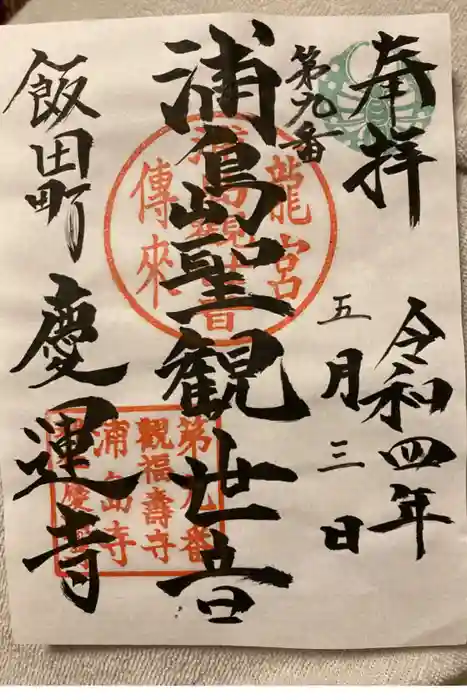 奉拝
令和四年
五月三日
第九番
浦島聖観世音
飯田町 慶運寺
龍宮
傳来
第九番
観福壽寺
浦島寺